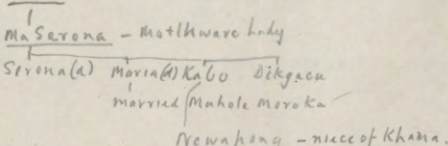 MaSerona - Motlhware Lady
Serona (d) Maria (d) Kabo Dikgacu
married Mahole Moroka
Newahong - niece of Khama.